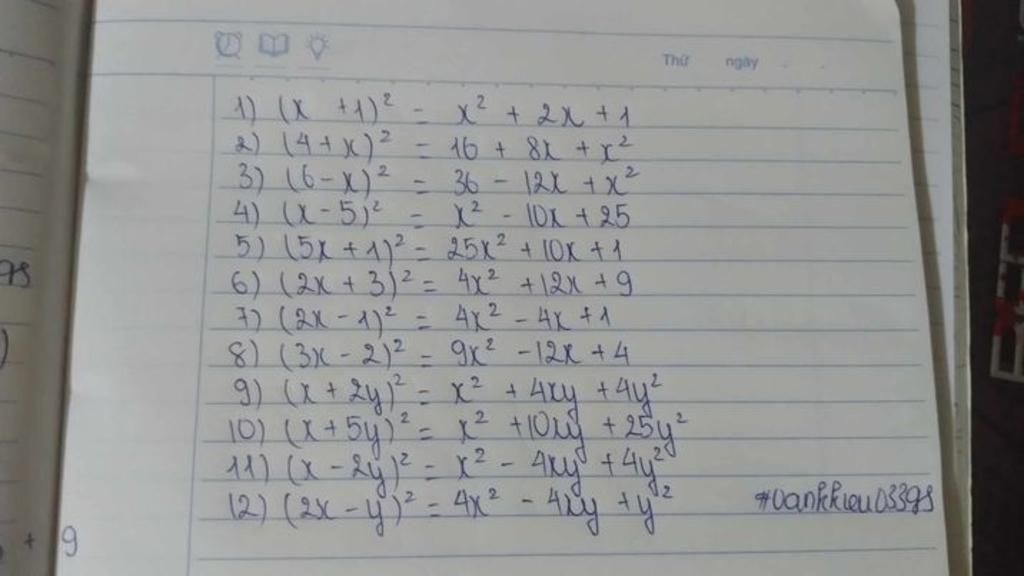 Thứ ngày
1) (x +1)² = x² + 2x +1
2) (4+x)² = 16 + 8x + x²
3) (6-x)² = 36 - 12x + x²
4) (x-5)² = x² - 10x + 25
5) (5x+1)² = 25x² + 10x + 1
6) (2x+3)² = 4x² + 12x + 9
7) (2x-1)² = 4x² - 4x + 1
8) (3x-2)² = 9x² - 12x + 4
9) (x+2y)² = x² + 4xy + 4y²
10) (x+5y)² = x² + 10xy + 25y²
11) (x-2y)² = x² - 4xy + 4y²
12) (2x-y)² = 4x² - 4xy + y²
+ 9